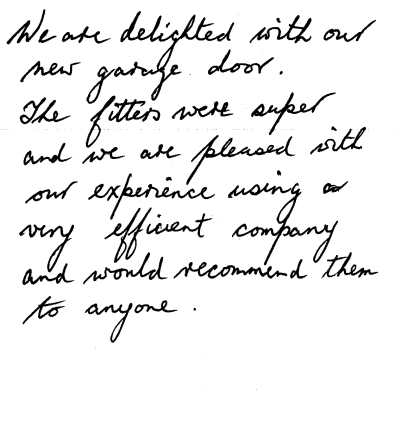 We are delighted with our
new garage door.
The fitters were super
and we are pleased with
our experience using a
very efficient company
and would recommend them
to anyone.